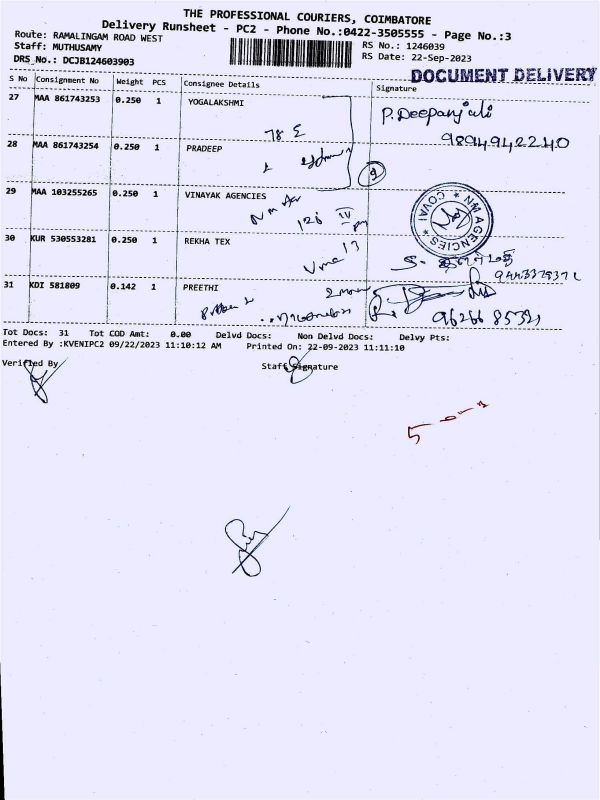 THE PROFESSIONAL COURIERS, COIMBATORE
Delivery Runsheet - PC2 - Phone No.:0422-3505555 - Page No.:3
Route: RAMALINGAM ROAD WEST
RS No.: 1246039
Staff: MUTHUSAMY
RS Date: 22-Sep-2023
DRS No.: DCJB124603903
DOCUMENT DELIVERY
S No Consignment No Weight PCS Consignee Details Signature
27 MAA 861743253 0.250 1 YOGALAKSHMI P. Deepanjali
78 E 9894942240
28 MAA 861743254 0.250 1 PRADEEP
29 MAA 103255265 0.250 1 VINAYAK AGENCIES
126 IV
NM AGENCIES * COVAI *
30 KUR 530553281 0.250 1 REKHA TEX
31 KDI 581809 0.142 1 PREETHI
Tot Docs: 31 Tot COD Amt: 0.00 Delvd Docs: Non Delvd Docs: Delvy Pts:
Entered By :KVENIPC2 09/22/2023 11:10:12 AM Printed On: 22-09-2023 11:11:10
Verified By Staff Signature